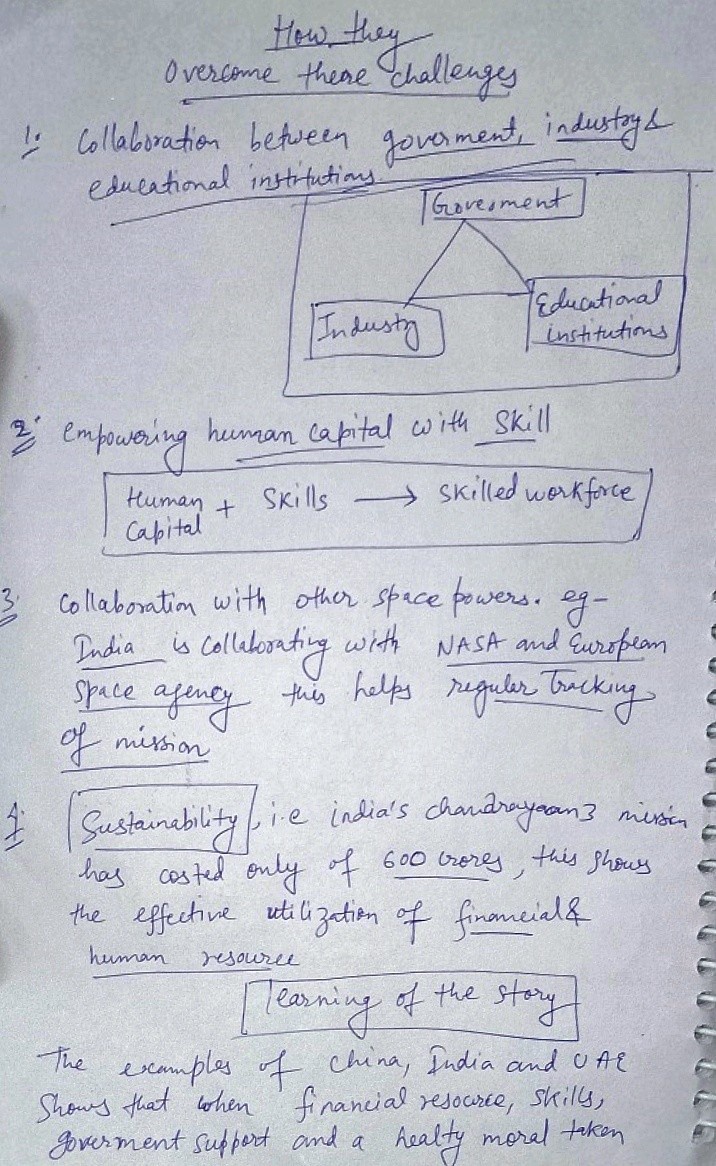 How they
Overcome these challenges
1. Collaboration between goverment, industry &
educational institutions.
Goverment
Industry
Educational
institutions
2. empowering human capital with Skill
Human + Skills → Skilled workforce
Capital
3. Collaboration with other space powers. eg-
India is Collaborating with NASA and European
Space agency this helps regular Tracking
of mission
4. Sustainability, i.e india's chandrayaan3 mission
has costed only of 600 crores, this shows
the effective utilization of financeial &
human resource
learning of the story
The examples of China, India and UAE
Shows that when financial resource, skills,
goverment support and a healty moral taken